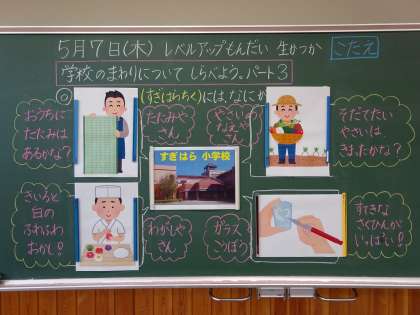 5月7日(木) レベルアップもんだい 生かつか こたえ
学校のまわりについて しらべよう。パート3
◎ (すぎはらちく)には、なにか
おうちに
たたみは
あるかな?
たたみや
さん
やさいの
なえや
さん
そだてたい
やさいは
きまったかな?
すぎはら 小学校
きいろと
白の
ふわふわ
おかし!
わがしや
さん
ガラス
こうぼう
すてきな
さくひんが
いっぱい!